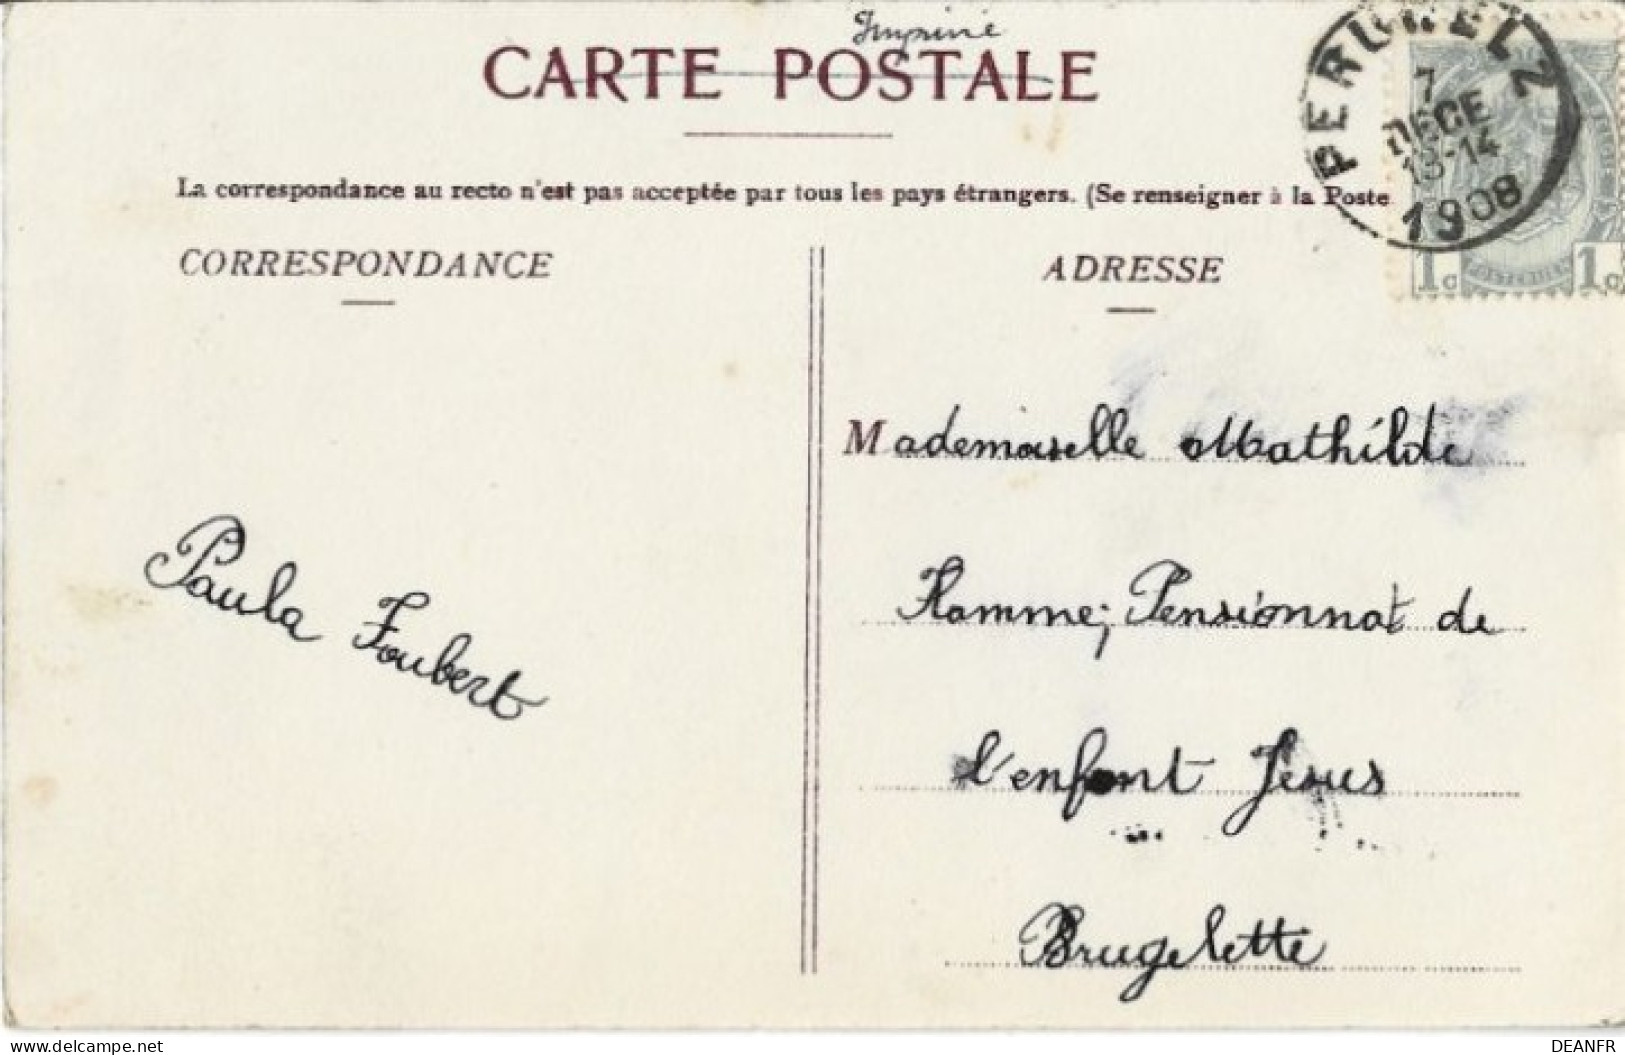 Imprimé
CARTE POSTALE
PERUWELZ
7
DECE
13-14
1908
La correspondance au recto n'est pas acceptée par tous les pays étrangers. (Se renseigner à la Poste
CORRESPONDANCE
ADRESSE
1c 1c
Mademoiselle Mathilde
Hamme; Pensionnat de
l'enfant Jesus
Brugelette
Paula Foubert
www.delcampe.net
DEANFR